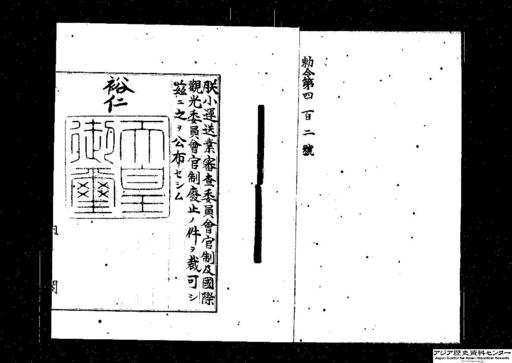 勅令第四百二號
朕小運送業審査委員會官制及國際
觀光委員會官制廢止ノ件ヲ裁可シ
茲ニ之ヲ公布セシム
裕仁
天皇
御璽
内閣
アジア歴史資料センター
Japan Center for Asian Historical Records